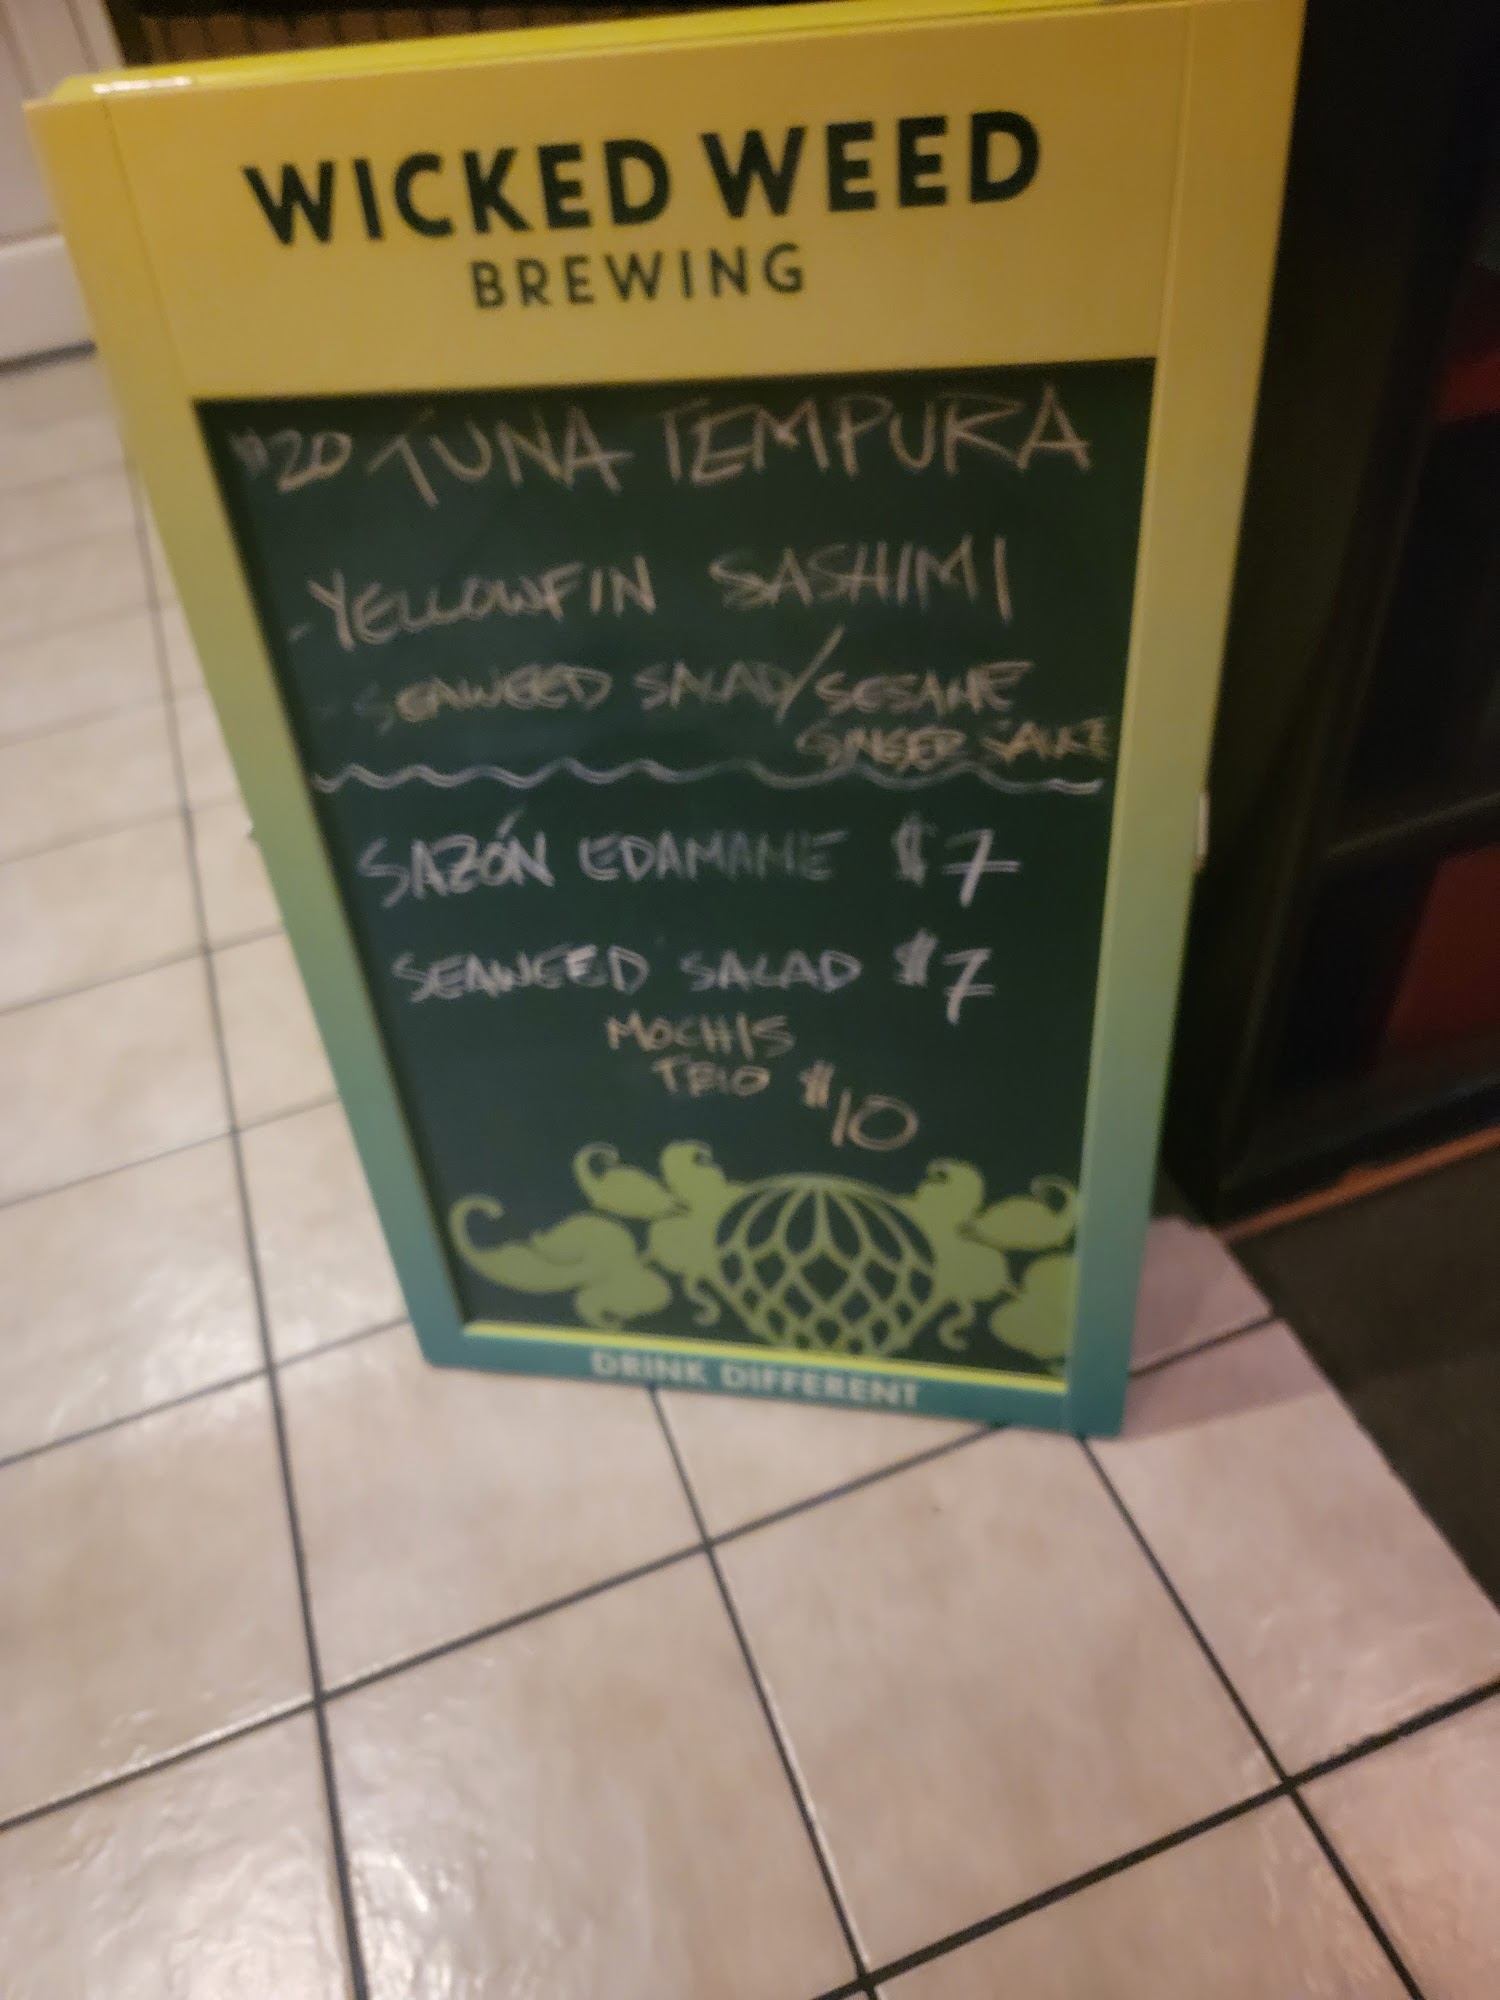 WICKED WEED
BREWING
$20 TUNA TEMPURA
- YELLOWFIN SASHIMI
- SEAWEED SALAD/SESAME
GINGER SAUCE
SAZÓN EDAMAME $7
SEAWEED SALAD $7
MOCHIS
TRIO $10
DRINK DIFFERENT